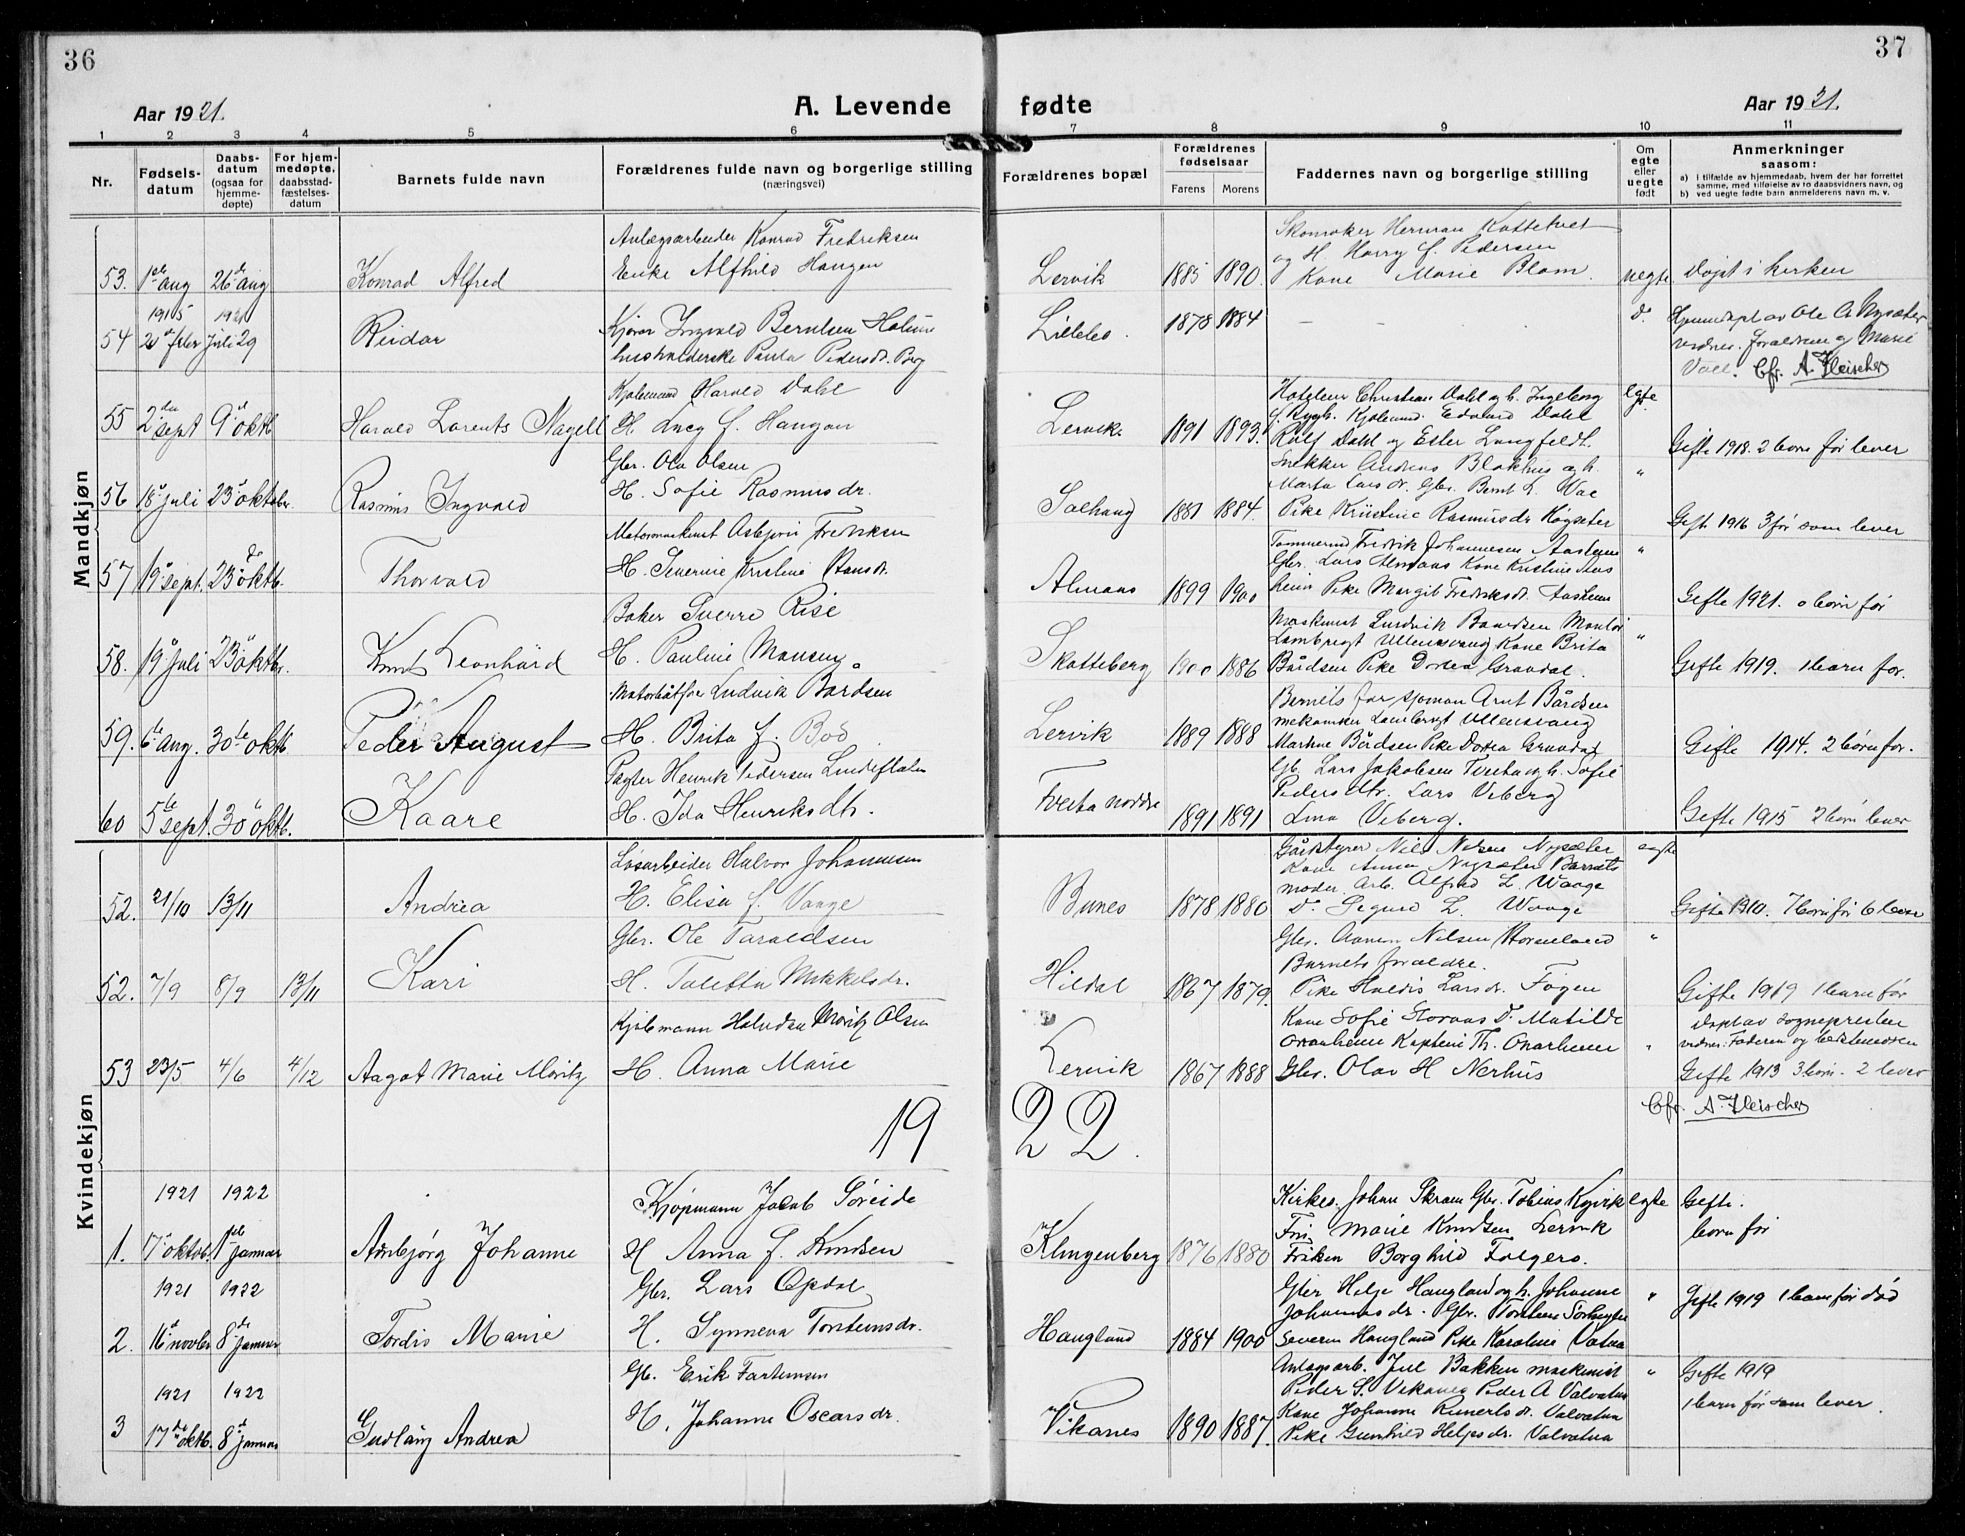 36
37
Aar 1921.
A. Levende fødte
Aar 1921.
1 2 3 4 5 6 7 8 9 10 11
Nr.
Fødsels-datum
Daabs-datum (ogsaa for hjemme-døpte)
For hjem-medøpte, daabsstad-fæstelses-datum
Barnets fulde navn
Forældrenes fulde navn og borgerlige stilling (næringsvei)
Forældrenes bopæl
Forældrenes fødselsaar
Farens Morens
Faddernes navn og borgerlige stilling
Om egte eller uegte født
Anmerkninger saasom:
a) i tilfælde av hjemmedaab, hvem der har forrettet samme, med tilføielse av to daabsvidners navn, og
b) ved uegte fødte barn anmelderens navn m. v.
Mandkjøn
Anlægsarbeider Konrad Fredriksen
Skomaker Herman Kattetvet
og H. Harry f. Pedersen
53. 1ste aug 26de aug Konrad Alfred Enke Alfhild Haugen Lervik 1885 1890. Kone Marie Blom uegte Døpt i kirken
1915 1921
54 Juli 29 Reidar Kjører Ingvald Berntsen
husholderske Paula Pedersdr. Berg
Lillebo. 1878 1884 — — — d.
Hjemmedøpt av Ole A Nysæter
vidner. forældrene og Marie
Cfr. A. Fleischer
Kjølemand Harald Dahl
Hoteleier Christian Dahl og h. Ingeborg egte
55 2den sept 9de oktb Harald Lorents Nagell H. Lucy f. Haugan Lervik. 1891 1893.
Kjølemd. Edvard Dahl
Rolf Dahl og Ester Langfeldt.
Gifte 1918. 2 born før lever
Gbr. Ola Olsen
Snekker Andreas Blokhus og h. "
Marta Larsdr. Gbr. Bernt L.
56 18 juli 23 oktober. Rasmus Ingvald H. Sofie Rasmusdr. Solhaug 1881 1884. Pike Kristine Rasmusdr Høgseter Gift 1916 3 før som lever
Motormaskinist Asbjørn Fredriksen
Tømmermd Fredrik Johannesen Aasheim "
Gbr. Lars Almaas Kone Kristine Aas
57 19 sept. 23 oktb. Thorvald H. Severine Kristine Hansdr. Almaas 1899 1900 heim Pike Margit Fredriksdr. Aasheim Gifte 1921. 0 born før
Baker Sverre Rise
Maskinist Ludvik Baardsen Montør
Lambregt Ullensvang Kone Brita "
58. 19 Juli 23 oktbr. Knut Leonhard H. Pauline Monsen. Skotteberg 1900 1886 Bårdsen Pike Dortea Gravdal. Gifte 1919. 1 barn før.
Motorbåtfører Ludvik Bårdsen
Bernets far sjøman Arnt Bårdsen
mekaniker Lambregt Ullensvang
59. 6te aug. 30te oktb Peder August H. Brita f. Boe Lervik 1889 1888 Martine Bårdsen Pike Dortea Gravdal Gifte 1914. 2 børn før.
Pagter Henrik Pedersen Lindeflaten
Gb. Lars Jakobsen Tveita og h. Sofie
Pedersdtr. Lars Veberg
60 5te sept. 30 oktb. Kaare H. Ida Henriksdtr. Tveita nordre 1891 1891 Lina Veberg. Gifte 1915 2 børn lever
Kvindekjøn
Løsarbeider Halvor Johannesen
Gårdstyrer Nils Nilsen Nysæter egte
Kone Anna Nysæter Barnets
moder. Arb. Alfred L. Waage
52. 21/10 13/11 Andrea H. Elisa f. Vaage Bunes 1878 1880 D. Sigurd L. Waage Gifte 1910. 7 born før 6 lever
Gbr. Ole Taraldsen
Gbr. Nilsen "
Barnets foraldre.
52. 7/9 8/9 13/11 Kari H. Taletta Mikkelsdr. Hildal 1867 1879. Pike Haldis Larsdr. Føyen Gifte 1919 1 barn før
Kjølemann Halvdan Moritz Olsen
Kone Sofie Storaas D. Matilde
Onarheim Kaptein Th. Onarheim "
Døpt av sognepresten
vidner: Faderen og bedstemoren
53 23/5 4/6 4/12 Aagot Marie Moritz H. Anna Marie Lervik 1867 1888 Gbr. Olav H Nerhus Gifte 1913 3 born. 2 lever
Cfr. A. Fleischer
19 22.
1921 1922
Kjøpmann Jacob Søreide
Kirkes. Johan Skram Gbr. Tobias Kyvik egte Gifte.
Frk Marie Knudsen Lervik
born før
1. 7 oktob. 1ste januar Annbjørg Johanne H Anna f. Knudsen Klingenberg 1876 1880 Frøken Borghild Folgerø.
1921 1922
Gbr. Lars Opdal
Gbr Helje Haugland og h. Johanne "
Gifte 1919 1 barn før død
Johannesdr. Gbr. Torstein
2. 16 novbr 8de januar Tordis Marie H. Synneva Torsteinsdr. Haugland 1884 1900 Severin Haugland Pike Karoline Valvatna
1921 1922
Gb. Erik Torstensen
Anlagsarb. Jul Bakken maskinist "
Gifte 1919
Peder S. Vikanes Peder A Valvatna
1 barn før som lever.
3 17de oktb. 8de januar Gudlaug Andrea H. Johanne Oscarsdr. Vikanes 1890 1887. Kone Johanne Valvatna
Pike Gunhild Heljesdr. Valvatna